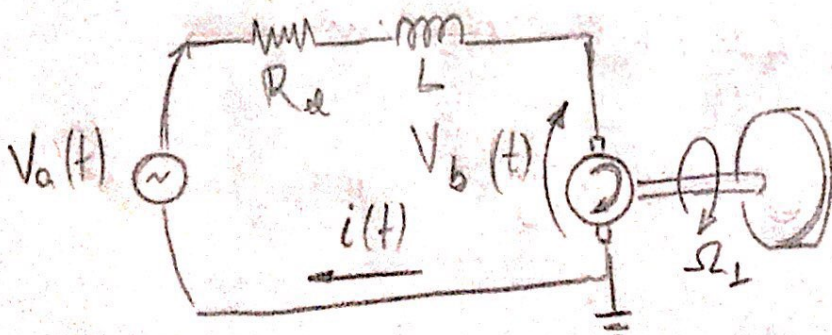 R_a L
V_a(t) V_b (t)
i(t)
Ω_1